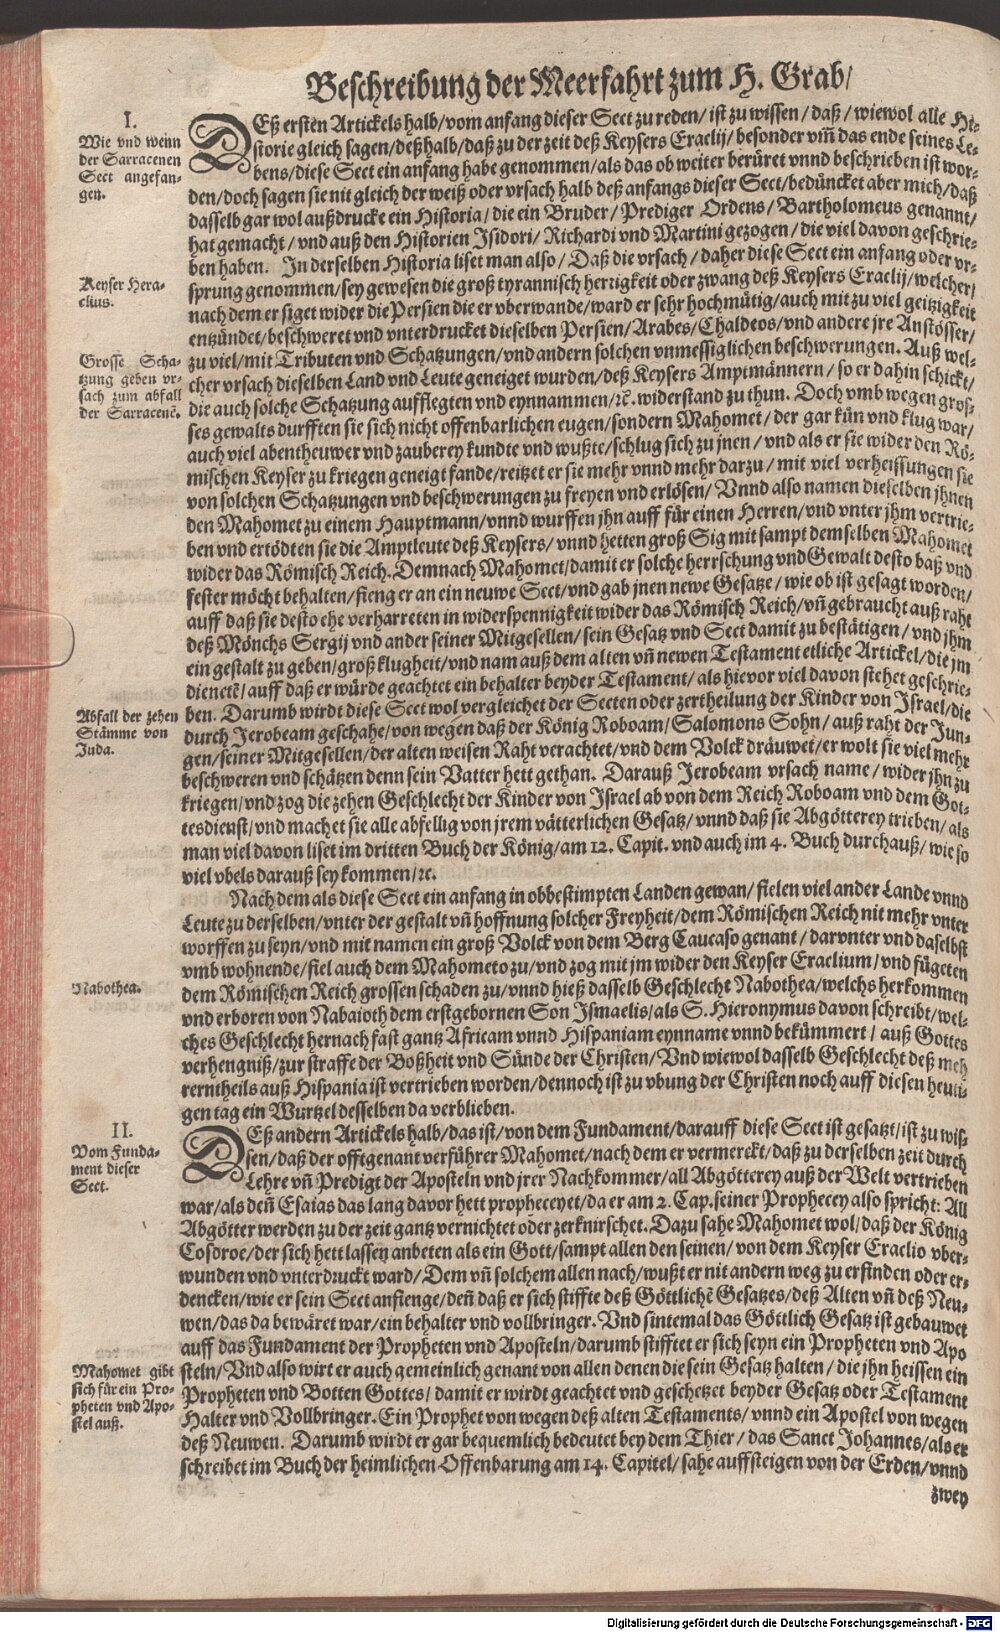 Beschreibung der Meerfahrt zum H. Grab/
I.
Wie vnd wenn
der Sarracenen
Sect angefan-
gen.
DEß ersten Artickels halb/vom anfang dieser Sect zu reden/ ist zu wissen/ daß/ wiewol alle Hi-
storie gleich sagen/deßhalb/daß zu der zeit deß Keysers Eraclij/ besonder vm̃ das ende seines Le-
bens/diese Sect ein anfang habe genommen/als das ob weiter berüret vnnd beschrieben ist wor-
den/doch sagen sie nit gleich der weiß oder vrsach halb deß anfangs dieser Sect/bedüncket aber mich/daß
dasselb gar wol außdrucke ein Historia/ die ein Bruder/ Prediger Ordens/ Bartholomeus genannt/
hat gemacht/ vnd auß den Historien Isidori/ Richardi vnd Martini gezogen/ die viel davon geschrie-
ben haben. In derselben Historia liset man also/ Daß die vrsach/ daher diese Sect ein anfang oder vr-
Keyser Hera-
clius.
sprung genommen/sey gewesen die groß tyrannisch hertigkeit oder zwang deß Keysers Eraclij/welcher/
nach dem er siget wider die Persien die er vberwande/ward er sehr hochmütig/auch mit zu viel geitzigkeit
entzündet/beschweret vnd vnterdrucket dieselben Persien/Arabes/Chaldeos/vnd andere jre Anstösser/
Grosse Scha-
tzung geben vr-
sach zum abfall
der Sarracenẽ.
zu viel/mit Tributen vnd Schatzungen/vnd andern solchen vnmessiglichen beschwerungen. Auß wel-
cher vrsach dieselben Land vnd Leute geneiget wurden/deß Keysers Amptmännern/ so er dahin schickt/
die auch solche Schatzung aufflegten vnd eynnammen/ꝛc. widerstand zu thun. Doch vmb wegen gros-
ses gewalts durfften sie sich nicht offenbarlichen eugen/sondern Mahomet/ der gar kün vnd klug war/
auch viel abentheuwer vnd zauberey kundte vnd wußte/schlug sich zu jnen/ vnd als er sie wider den Rö-
mischen Keyser zu kriegen geneigt fande/reitzet er sie mehr vnnd mehr darzu/ mit viel verheissungen sie
von solchen Schatzungen vnd beschwerungen zu freyen vnd erlösen/ Vnnd also namen dieselben jhnen
den Mahomet zu einem Hauptmann/vnnd wurffen jhn auff für einen Herren/vnd vnter jhm vertrie-
ben vnd ertödten sie die Amptleute deß Keysers/ vnnd hetten groß Sig mit sampt demselben Mahomet
wider das Römisch Reich. Demnach Mahomet/damit er solche herrschung vnd Gewalt desto baß vnd
fester möcht behalten/fieng er an ein neuwe Sect/vnd gab jnen newe Gesatze/ wie ob ist gesagt worden/
auff daß sie desto ehe verharreten in widerspennigkeit wider das Römisch Reich/vñ gebraucht auß raht
deß Mönchs Sergij vnd ander seiner Mitgesellen/sein Gesatz vnd Sect damit zu bestätigen/ vnd jhm
ein gestalt zu geben/groß klugheit/vnd nam auß dem alten vñ newen Testament etliche Artickel/die jm
dienetẽ/auff daß er würde geachtet ein behalter beyder Testament/ als hievor viel davon stehet geschrie-
Abfall der zehen
Stämme von
Juda.
ben. Darumb wirdt diese Sect wol vergleichet der Secten oder zertheilung der Kinder von Israel/die
durch Jerobeam geschahe/von wegen daß der König Roboam/Salomons Sohn/ auß raht der Jun-
gen/seiner Mitgesellen/der alten weisen Raht verachtet/vnd dem Volck dräuwet/er wolt sie viel mehr
beschweren vnd schätzen denn sein Vatter hett gethan. Darauß Jerobeam vrsach name/ wider jhn zu
kriegen/vnd zog die zehen Geschlecht der Kinder von Israel ab von dem Reich Roboam vnd dem Got-
tesdienst/vnd machet sie alle abfellig von jrem vätterlichen Gesatz/vnnd daß sie Abgötterey trieben/als
man viel davon liset im dritten Buch der König/am 12. Capit. vnd auch im 4. Buch durchauß/wie so
viel vbels darauß sey kommen/ꝛc.
Nach dem als diese Sect ein anfang in obbestimpten Landen gewan/ fielen viel ander Lande vnnd
Leute zu derselben/vnter der gestalt vñ hoffnung solcher Freyheit/dem Römischen Reich nit mehr vnter
worffen zu seyn/vnd mit namen ein groß Volck von dem Berg Caucaso genant/ darvnter vnd daselbst
vmb wohnende/fiel auch dem Mahometo zu/vnd zog mit jm wider den Keyser Eraclium/vnd fügeten
Nabothea.
dem Römischen Reich grossen schaden zu/vnnd hieß dasselb Geschlecht Nabothea/welchs herkommen
vnd erboren von Nabaioth dem erstgebornen Son Ismaelis/als S. Hieronymus davon schreibt/wel-
ches Geschlecht hernach fast gantz Africam vnnd Hispaniam eynname vnnd bekümmert/ auß Gottes
verhengniß/zur straffe der Boßheit vnd Sünde der Christen/Vnd wiewol dasselb Geschlecht deß meh
rerntheils auß Hispania ist vertrieben worden/dennoch ist zu vbung der Christen noch auff diesen heuti-
gen tag ein Wurtzel desselben da verblieben.
II.
Vom Funda-
ment dieser
Sect.
DEß andern Artickels halb/das ist/von dem Fundament/darauff diese Sect ist gesatzt/ist zu wis-
sen/daß der offtgenant verführer Mahomet/nach dem er vermerckt/daß zu derselben zeit durch
Lehre vñ Predigt der Aposteln vnd jrer Nachkommer/all Abgötterey auß der Welt vertrieben
war/als deñ Esaias das lang davor hett propheceyet/da er am 2. Cap.seiner Prophecey also spricht: All
Abgötter werden zu der zeit gantz vernichtet oder zerknirschet. Dazu sahe Mahomet wol/daß der König
Cosdroe/der sich hett lassen anbeten als ein Gott/sampt allen den seinen/ von dem Keyser Eraclio vber-
wunden vnd vnterdruckt ward/Dem vñ solchem allen nach/wußt er nit andern weg zu erfinden oder er-
dencken/wie er sein Sect anfienge/deñ daß er sich stiffte deß Göttlichẽ Gesatzes/deß Alten vñ deß Neu-
wen/das da bewäret war/ein behalter vnd vollbringer. Vnd sintemal das Göttlich Gesatz ist gebauwet
auff das Fundament der Propheten vnd Aposteln/darumb stifftet er sich seyn ein Propheten vnd Apo
Mahomet gibt
sich für ein Pro-
pheten vnd Apo-
stel auß.
steln/Vnd also wirt er auch gemeinlich genant von allen denen die sein Gesatz halten/ die jhn heissen ein
Propheten vnd Botten Gottes/ damit er wirdt geachtet vnd geschetzet beyder Gesatz oder Testament
Halter vnd Vollbringer. Ein Prophet von wegen deß alten Testaments/ vnnd ein Apostel von wegen
deß Neuwen. Darumb wirdt er gar bequemlich bedeutet bey dem Thier/ das Sanct Johannes/als er
schreibet im Buch der heimlichen Offenbarung am 14. Capitel/ sahe auffsteigen von der Erden/vnnd
zwey
Digitalisierung gefördert durch die Deutsche Forschungsgemeinschaft - DFG